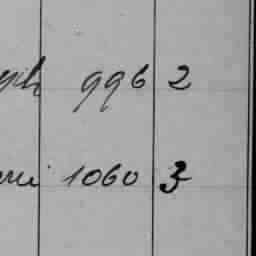 996 2
1060 3